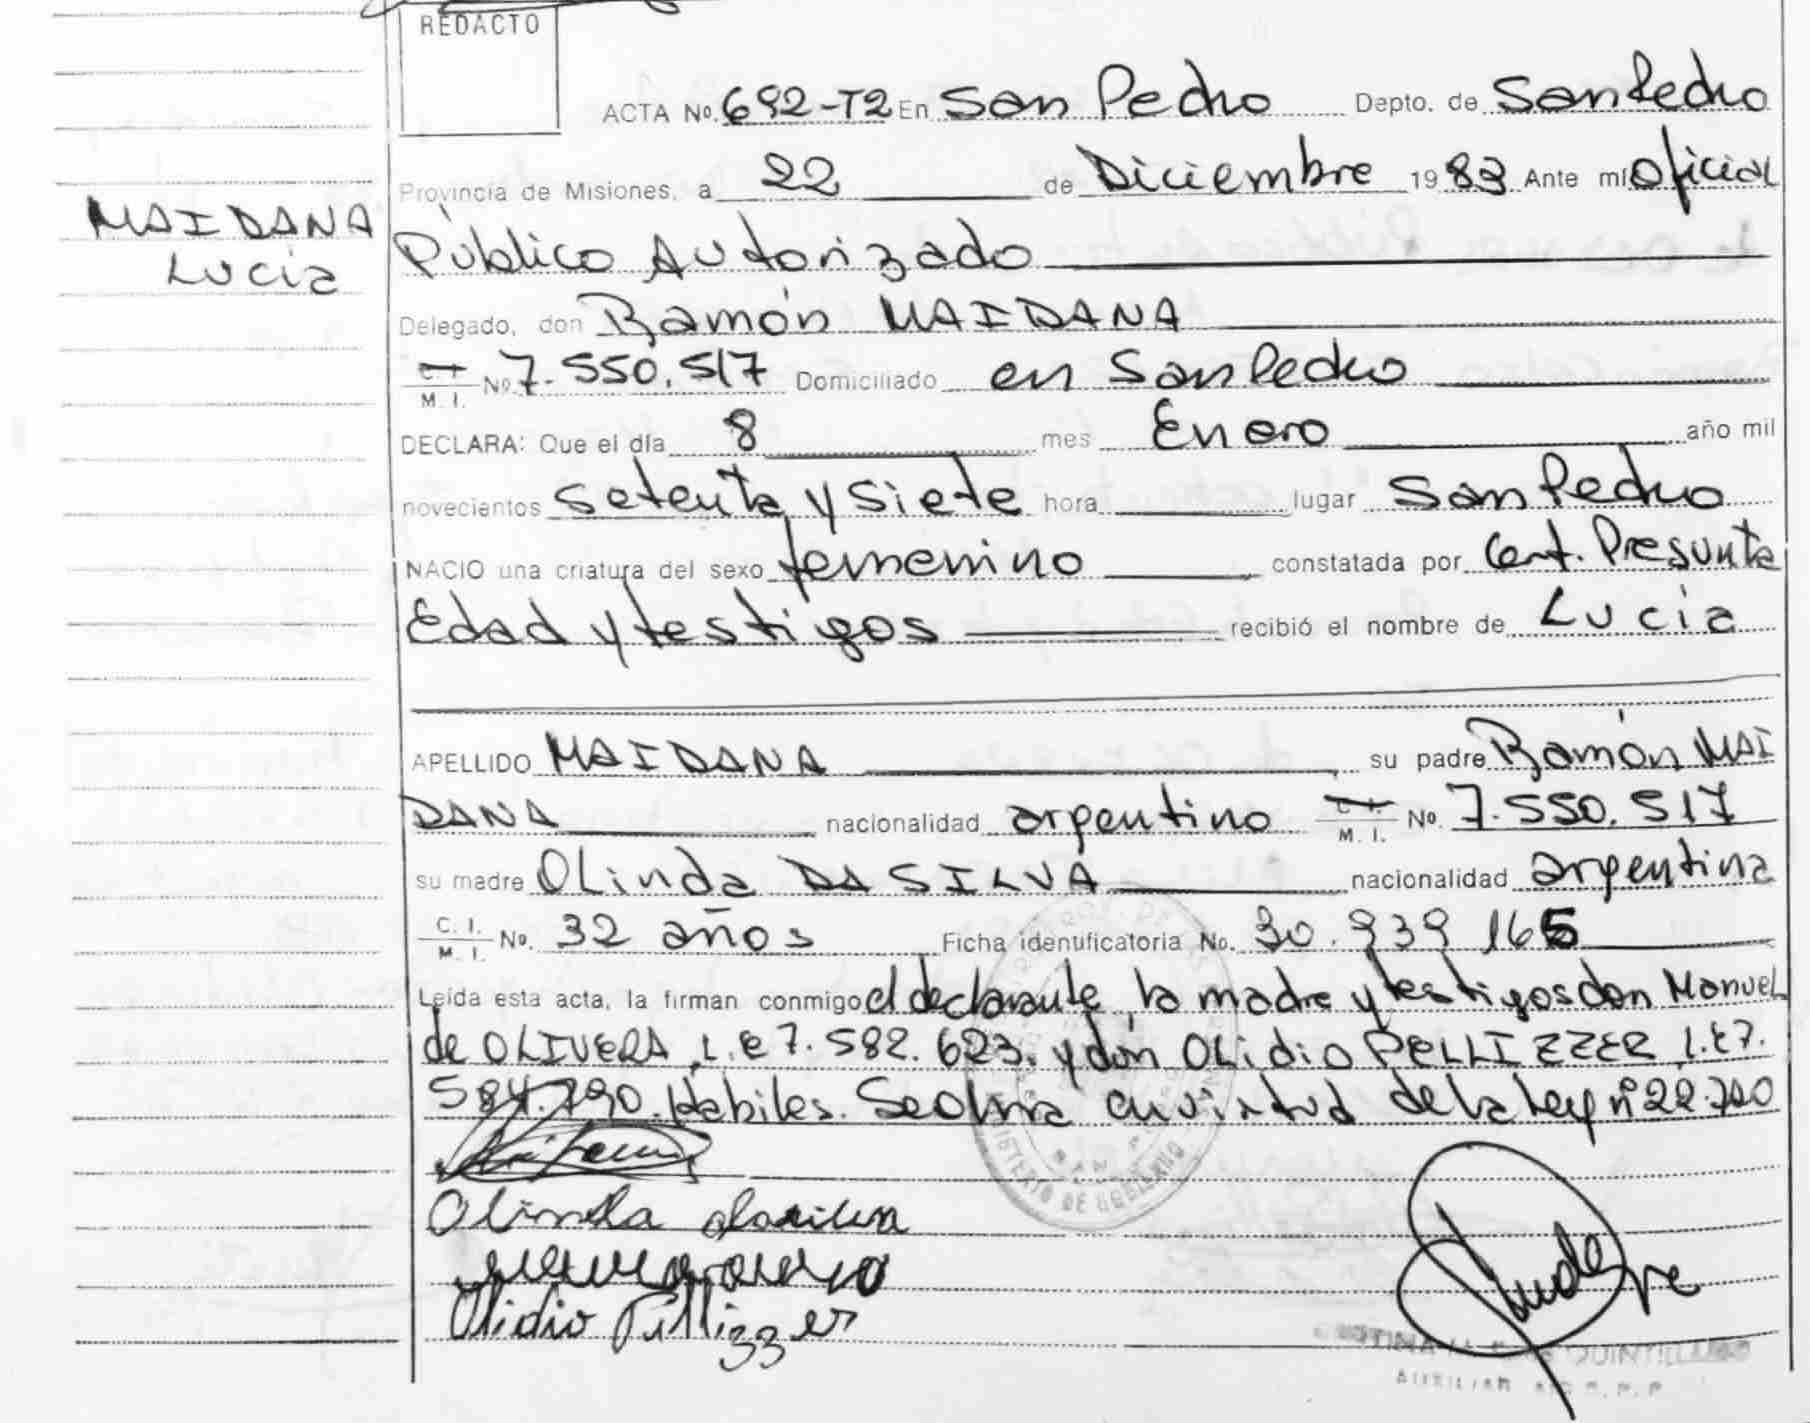 REDACTO
ACTA No. 692-T2 En San Pedro Depto. de San Pedro
Provincia de Misiones, a 22 de Diciembre 1983 Ante mí Oficial
MAIDANA
Lucía
Público Autorizado
Delegado, don Ramón MAIDANA
C. I. M. I. No. 7.550.517 Domiciliado en San Pedro
DECLARA: Que el día 8 mes Enero año mil
novecientos setenta y siete hora lugar San Pedro
NACIO una criatura del sexo femenino constatada por Cert. Presunta
Edad y testigos recibió el nombre de Lucía
APELLIDO MAIDANA su padre Ramón MAI
DANA nacionalidad argentino C. I. M. I. No. 7.550.517
su madre OLinda DA SILVA nacionalidad argentina
C. I. M. I. No. 32 años Ficha identificatoria No. 30.939.165
Leída esta acta, la firman conmigo el declarante, la madre y testigos don Manuel
de OLIVERA, L.E 7.582.623. y don OLidio PELLIZZER L.E 7.
584.790. Habiles. Se Labra en virtud de la Ley nº 22.700
Olinda dasilva
Olidio Pellizzer
MINISTERIO DE GOBIERNO
QUINTILLANO
AUXILIAR